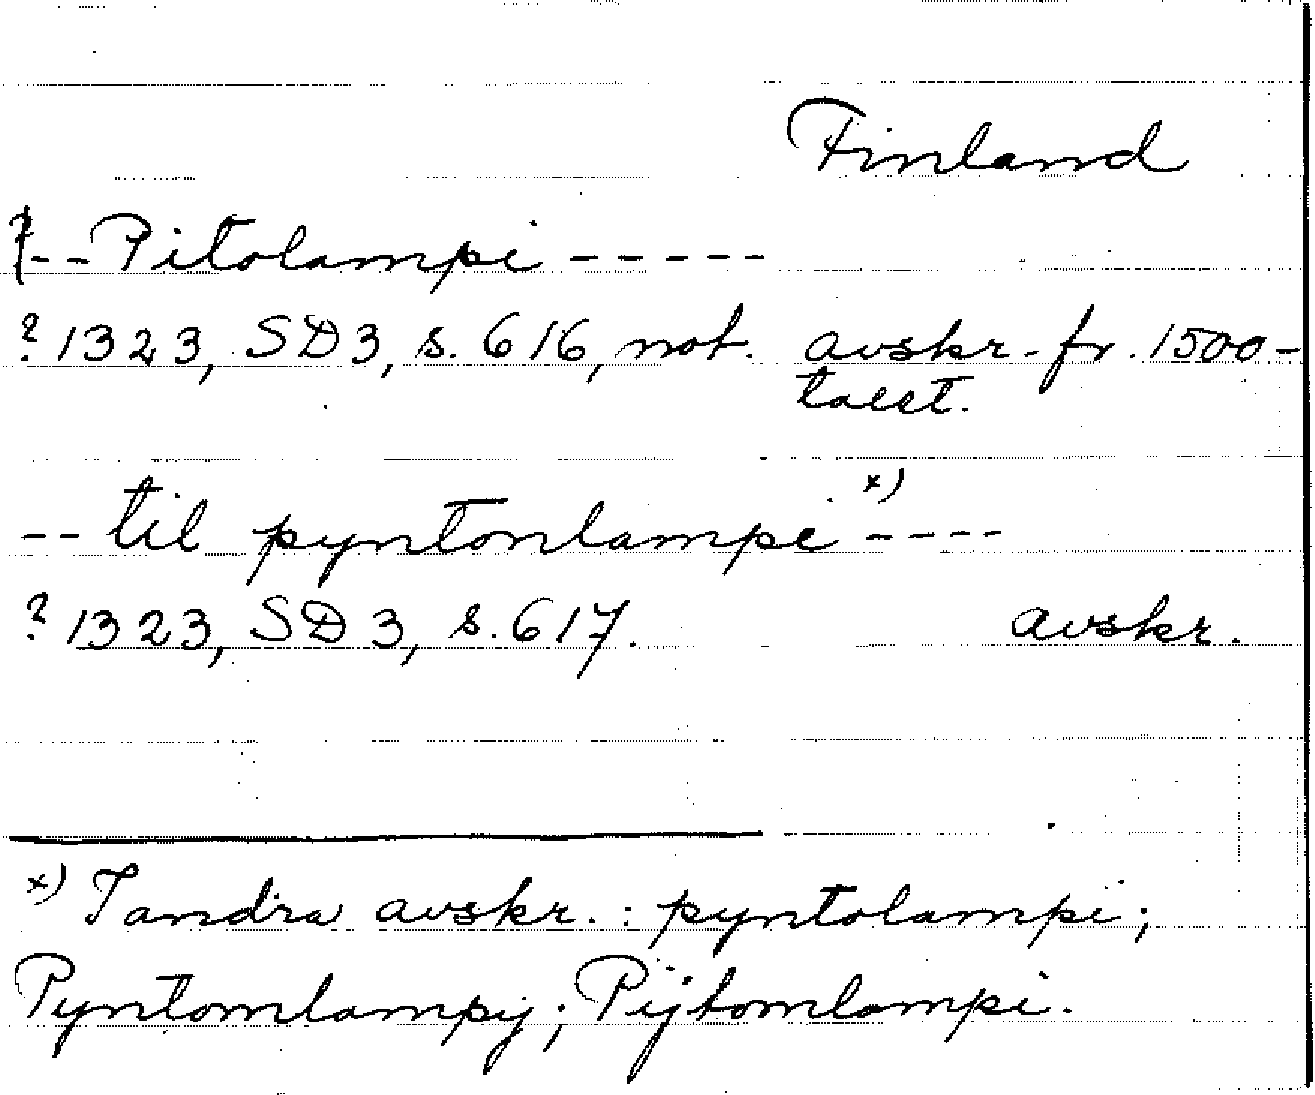 Finland
?--Pitolampi-----
? 1323, SD3, s. 616, not. avskr. fr. 1500-
talet.
-- til pyntonlampe x) ----
? 1323, SD3, s. 617. avskr.
x) I andra avskr. : pyntolampi;
Pyntomlampij; Pijtomlampi.